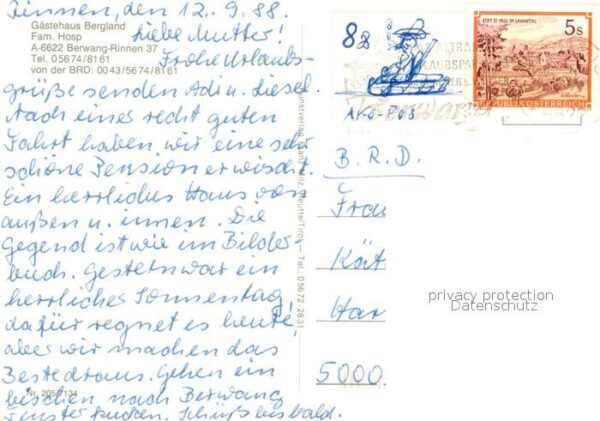 Rinnen, den 12.9.88.
Gästehaus Bergland
Fam. Hosp
A-6622 Berwang-Rinnen 37
Tel. 05674/8161
von der BRD: 0043/5674/8161
Liebe Mutter!
Frohe Urlaubs-
grüße senden Adi u. Liesel.
Nach einer recht guten
Fahrt haben wir eine sehr
schöne Pension erwischt.
Ein herrliches Haus von
außen u. innen. Die
Gegend ist wie im Bilder-
buch. Gestern war ein
herrlicher Sonnentag,
dafür regnet es heute,
aber wir machen das
Beste draus. Gehen ein
bischen nach Berwang
Fenster gucken. Tschüß bis bald.
Nr. 205/7134
Reutte/Tirol, Tel.: 05672-2831
8B
AKG-P03
STIFT ST. PAUL IM LAVANTTAL
5s
REPUBLIK ÖSTERREICH
B.R.D.
Frau
Kät
Har
5000
privacy protection
Datenschutz